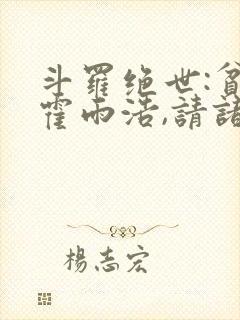 斗羅绝世:貧
霍雨浩,請諸
楊志宏